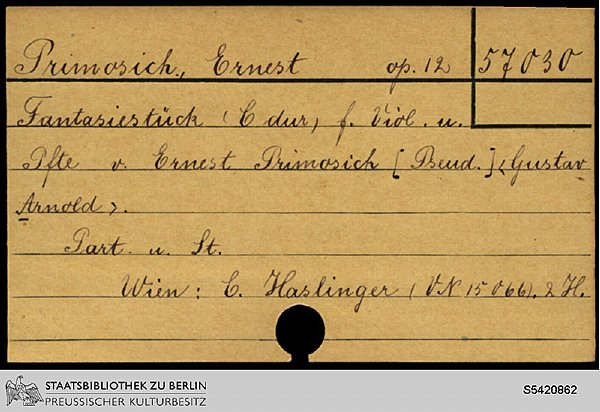 Primosich, Ernest op. 12 57030
Fantasiestück (C dur) f. Viol. u.
Pfte v. Ernest Primosich [Pseud.] <Gustav
Arnold>.
Part. u. St.
Wien: C. Haslinger (VN 15 066). 2 H.
STAATSBIBLIOTHEK ZU BERLIN
PREUSSISCHER KULTURBESITZ
S5420862